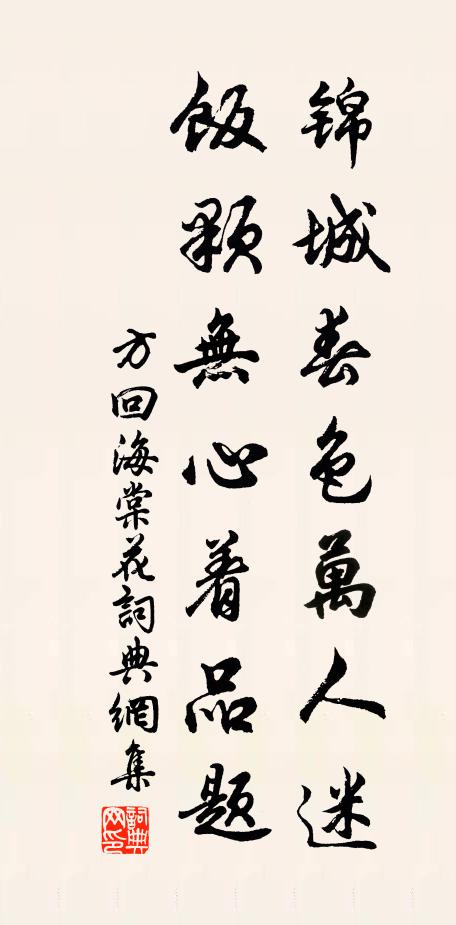 锦城春色萬人迷
飯顆無心着品题
方回海棠花詞典網集
詞典网印